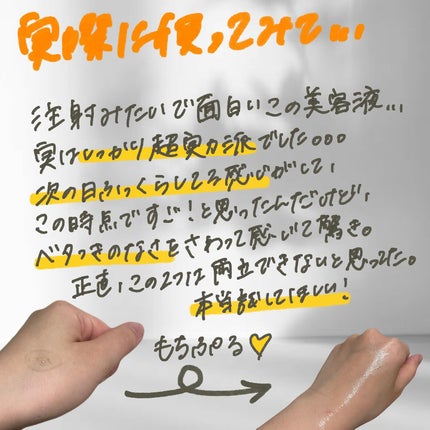 実際に使ってみて...
注射みたいで面白いこの美容液...
実はしっかり超実力派でした。。。
次の日ふっくらしてる感じがして、
この時点ですご！と思ったんだけど、
ベタつきのなさをさわって感じて驚き。
正直、この2つは両立できないと思ってた。
本当試してほしい！
もちぷる♡